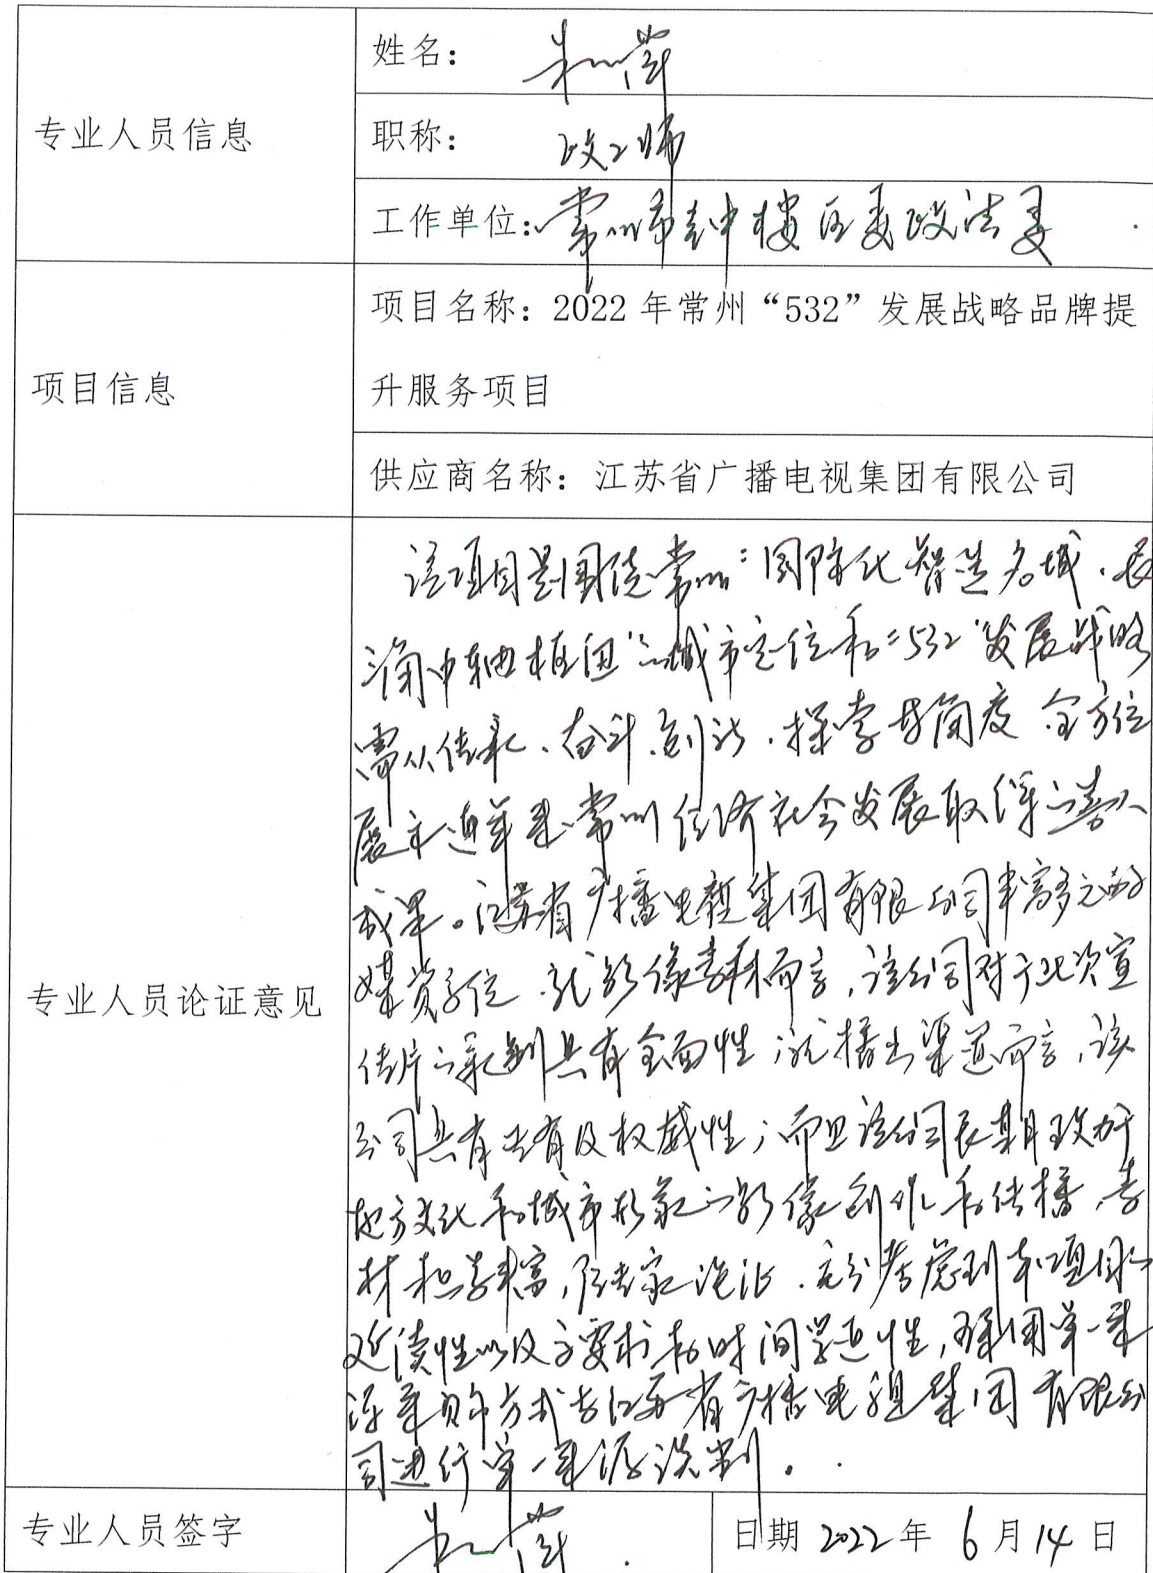 专业人员信息
姓名：
职称： 政工师
工作单位：常州市钟楼区委政法委
项目信息
项目名称：2022 年常州“532”发展战略品牌提
升服务项目
供应商名称：江苏省广播电视集团有限公司
专业人员论证意见
该项目是围绕常州“国际化智造名城、长
三角中轴枢纽”的城市定位和“532”发展战略
需从传承、奋斗、创新、探索等角度 全方位
展示近年来常州经济社会发展取得的喜人
成果。江苏省广播电视集团有限公司丰富多元的
媒资 就影像素材而言，该公司对于此次宣
传片的承制具有全面性；就播出渠道而言，该
公司具有占有及权威性；而且该公司长期致力于
地方文化和城市形象的影像创作和传播，素
材积累丰富，经专家论证，充分考虑到本项目的
延续性以及主要指标时间紧迫性，采用单一来
源采购方式 江苏省广播电视集团有限公
司进行单一来源谈判。
专业人员签字
日期 2022 年 6 月 14 日